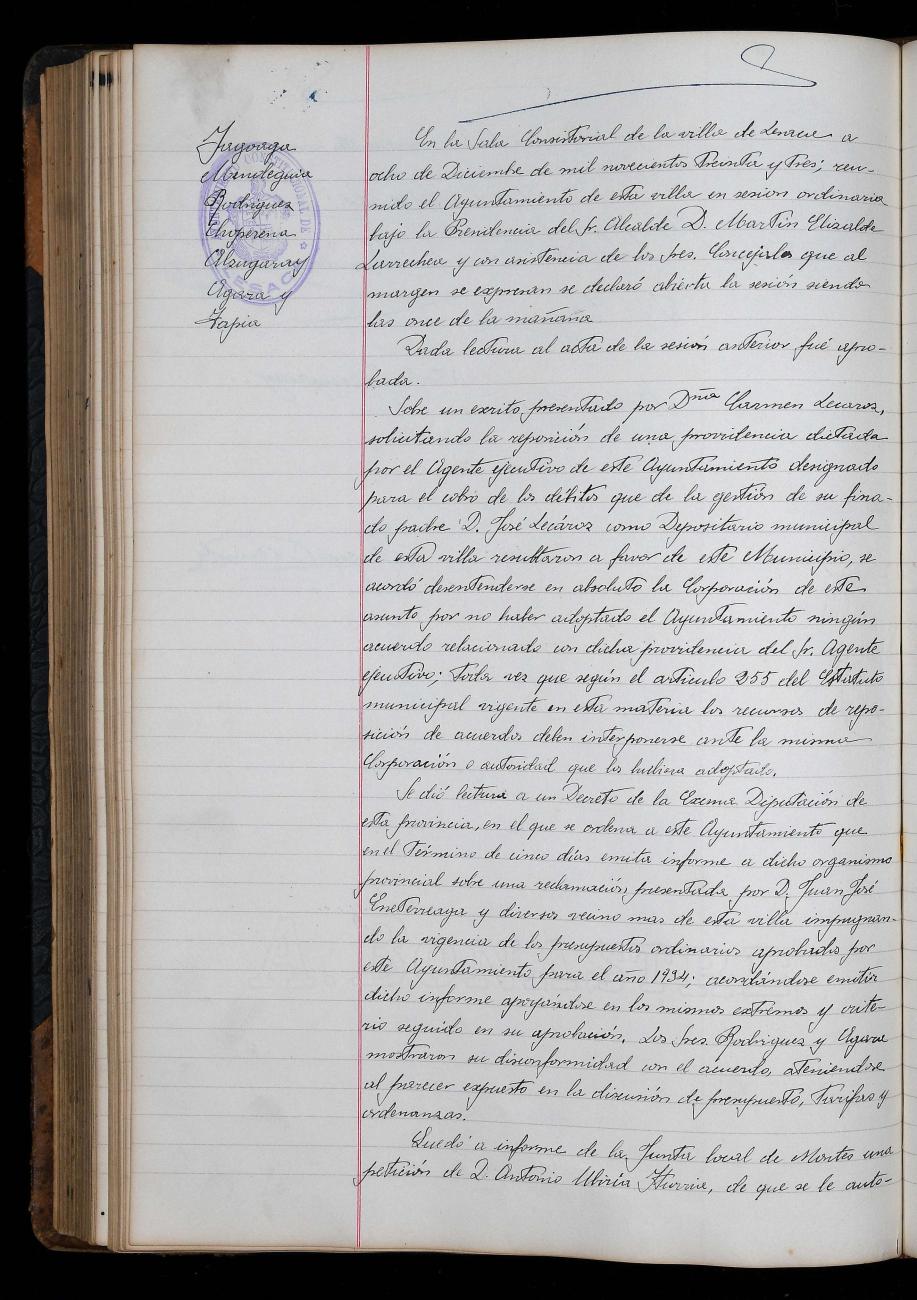 Jagoaga
Mendeguia
Rodriguez
Choperena
Alzugaray
Egara y
Tapia
CONSTITUCIONAL DE
LESACA
En la Sala Consistorial de la villa de Lesaca a
ocho de Diciembre de mil novecientos treinta y tres; reu-
nido el Ayuntamiento de esta villa en sesión ordinaria
bajo la Presidencia del Sr. Alcalde D. Martín Elizalde
Larrechea y con asistencia de los Sres. Concejales que al
margen se expresan se declaró abierta la sesión siendo
las once de la mañana
Dada lectura al acta de la sesión anterior fué apro-
bada.
Sobre un escrito presentado por Dña Carmen Lecaroz,
solicitando la reposición de una providencia dictada
por el Agente ejecutivo de este Ayuntamiento designado
para el cobro de los débitos que de la gestión de su fina-
do padre D. José Lecároz como Depositario municipal
de esta villa resultaron a favor de este Municipio, se
acordó desentenderse en absoluto la Corporación de este
asunto por no haber adoptado el Ayuntamiento ningún
acuerdo relacionado con dicha providencia del Sr. Agente
ejecutivo; toda vez que según el artículo 255 del Estatuto
municipal vigente en esta materia los recursos de repo-
sición de acuerdos deben interponerse ante la misma
Corporación o autoridad que los hubiera adoptado.
Se dió lectura a un Decreto de la Excma Diputación de
esta provincia, en el que se ordena a este Ayuntamiento que
en el término de cinco días emita informe a dicho organismo
provincial sobre una reclamación presentada por D. Juan José
Eneterreaga y diversos vecino mas de esta villa impugnan-
do la vigencia de los presupuestos ordinarios aprobados por
este Ayuntamiento para el año 1934; acordándose emitir
dicho informe apoyándose en los mismos extremos y crite-
rio seguido en su aprobación. Los Sres. Rodriguez y Egara
mostraron su disconformidad con el acuerdo, ateniendose
al parecer expuesto en la discusión de presupuesto, tarifas y
ordenanzas.
Quedó a informe de la Junta local de Montes una
petición de D. Antonio Iturria, de que se le auto-